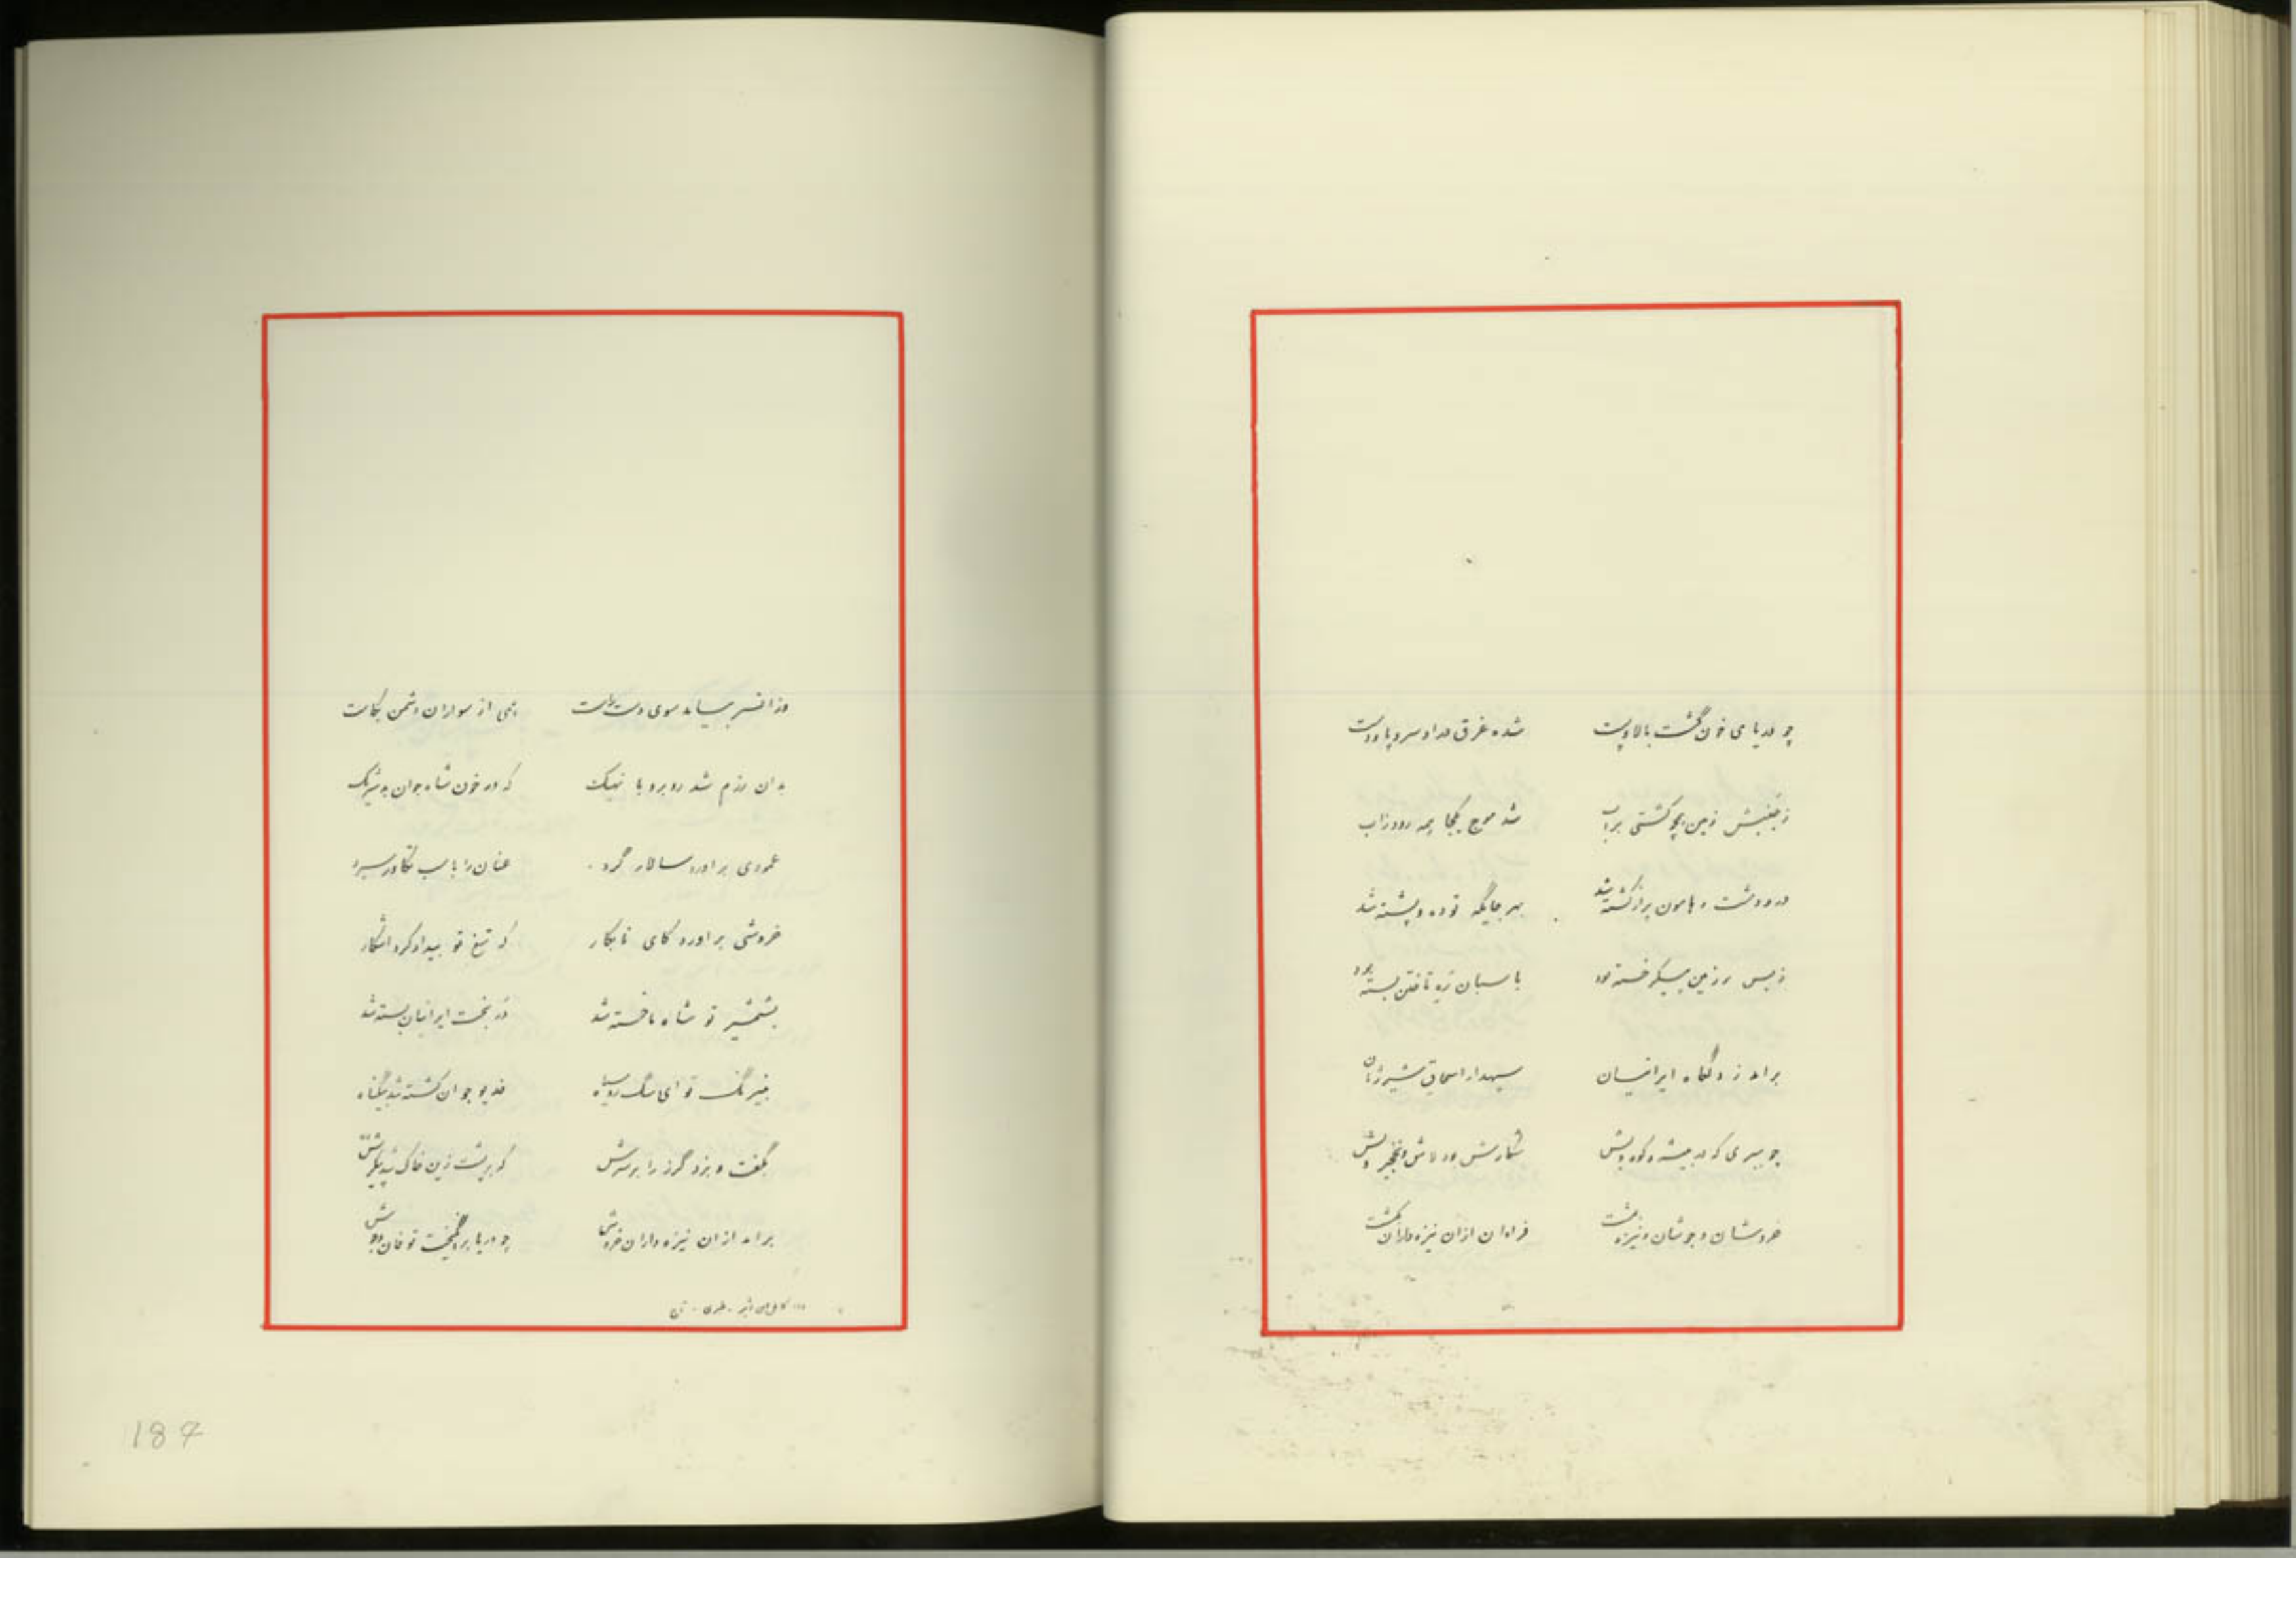 چو دریای خون گشت بالا و پست شده غرق مداد سر و پا و دست
ز جنبش زمین همچو کشتی بر اب شد موج یکجا همه رود زاب
در و دشت و هامون پر از کشته شد بهر جایگه توده و پشته شد
ز بس بر زمین پیکر خسته بود با سبان ره تاختن بسته بود
بر امد ز درگاه ایرانیان سپهدار اسحاق شیر ژیان
چو ببری که در بیشه و کوه و شکارش بود لاش و نخجیر و
خروشان و جوشان و نیزه بمشت فراوان ازان نیزه داران بکشت
وزانسر بیامد سوی دست راست همی از سواران دشمن بکاست
بدان رزم شد روبرو با نهیک که در خون شاه جوان بد شریک
عمودی بر اورد سالار گرد عنان را با سب تکاور سپرد
خروشی بر اورد کای نابکار که تیغ تو بیداد کرد اشکار
بشمشیر تو شاه ما خسته شد در بخت ایرانیان بسته شد
بنیرنگ تو ای سگ رو سیاه خدیو جوان کشته شد بیگناه
بگفت و بزد گرز را بر سرش که بر پشت زین خاک شد پیکرش
بر امد ازان نیزه داران خروش چو دریا بر انگیخت توفان و جوش
187